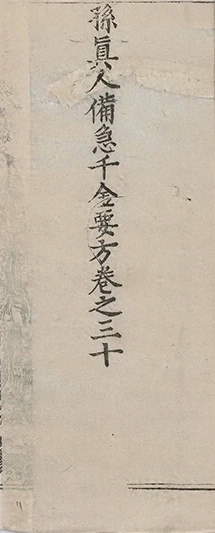 孫眞人備急千金要方卷之三十